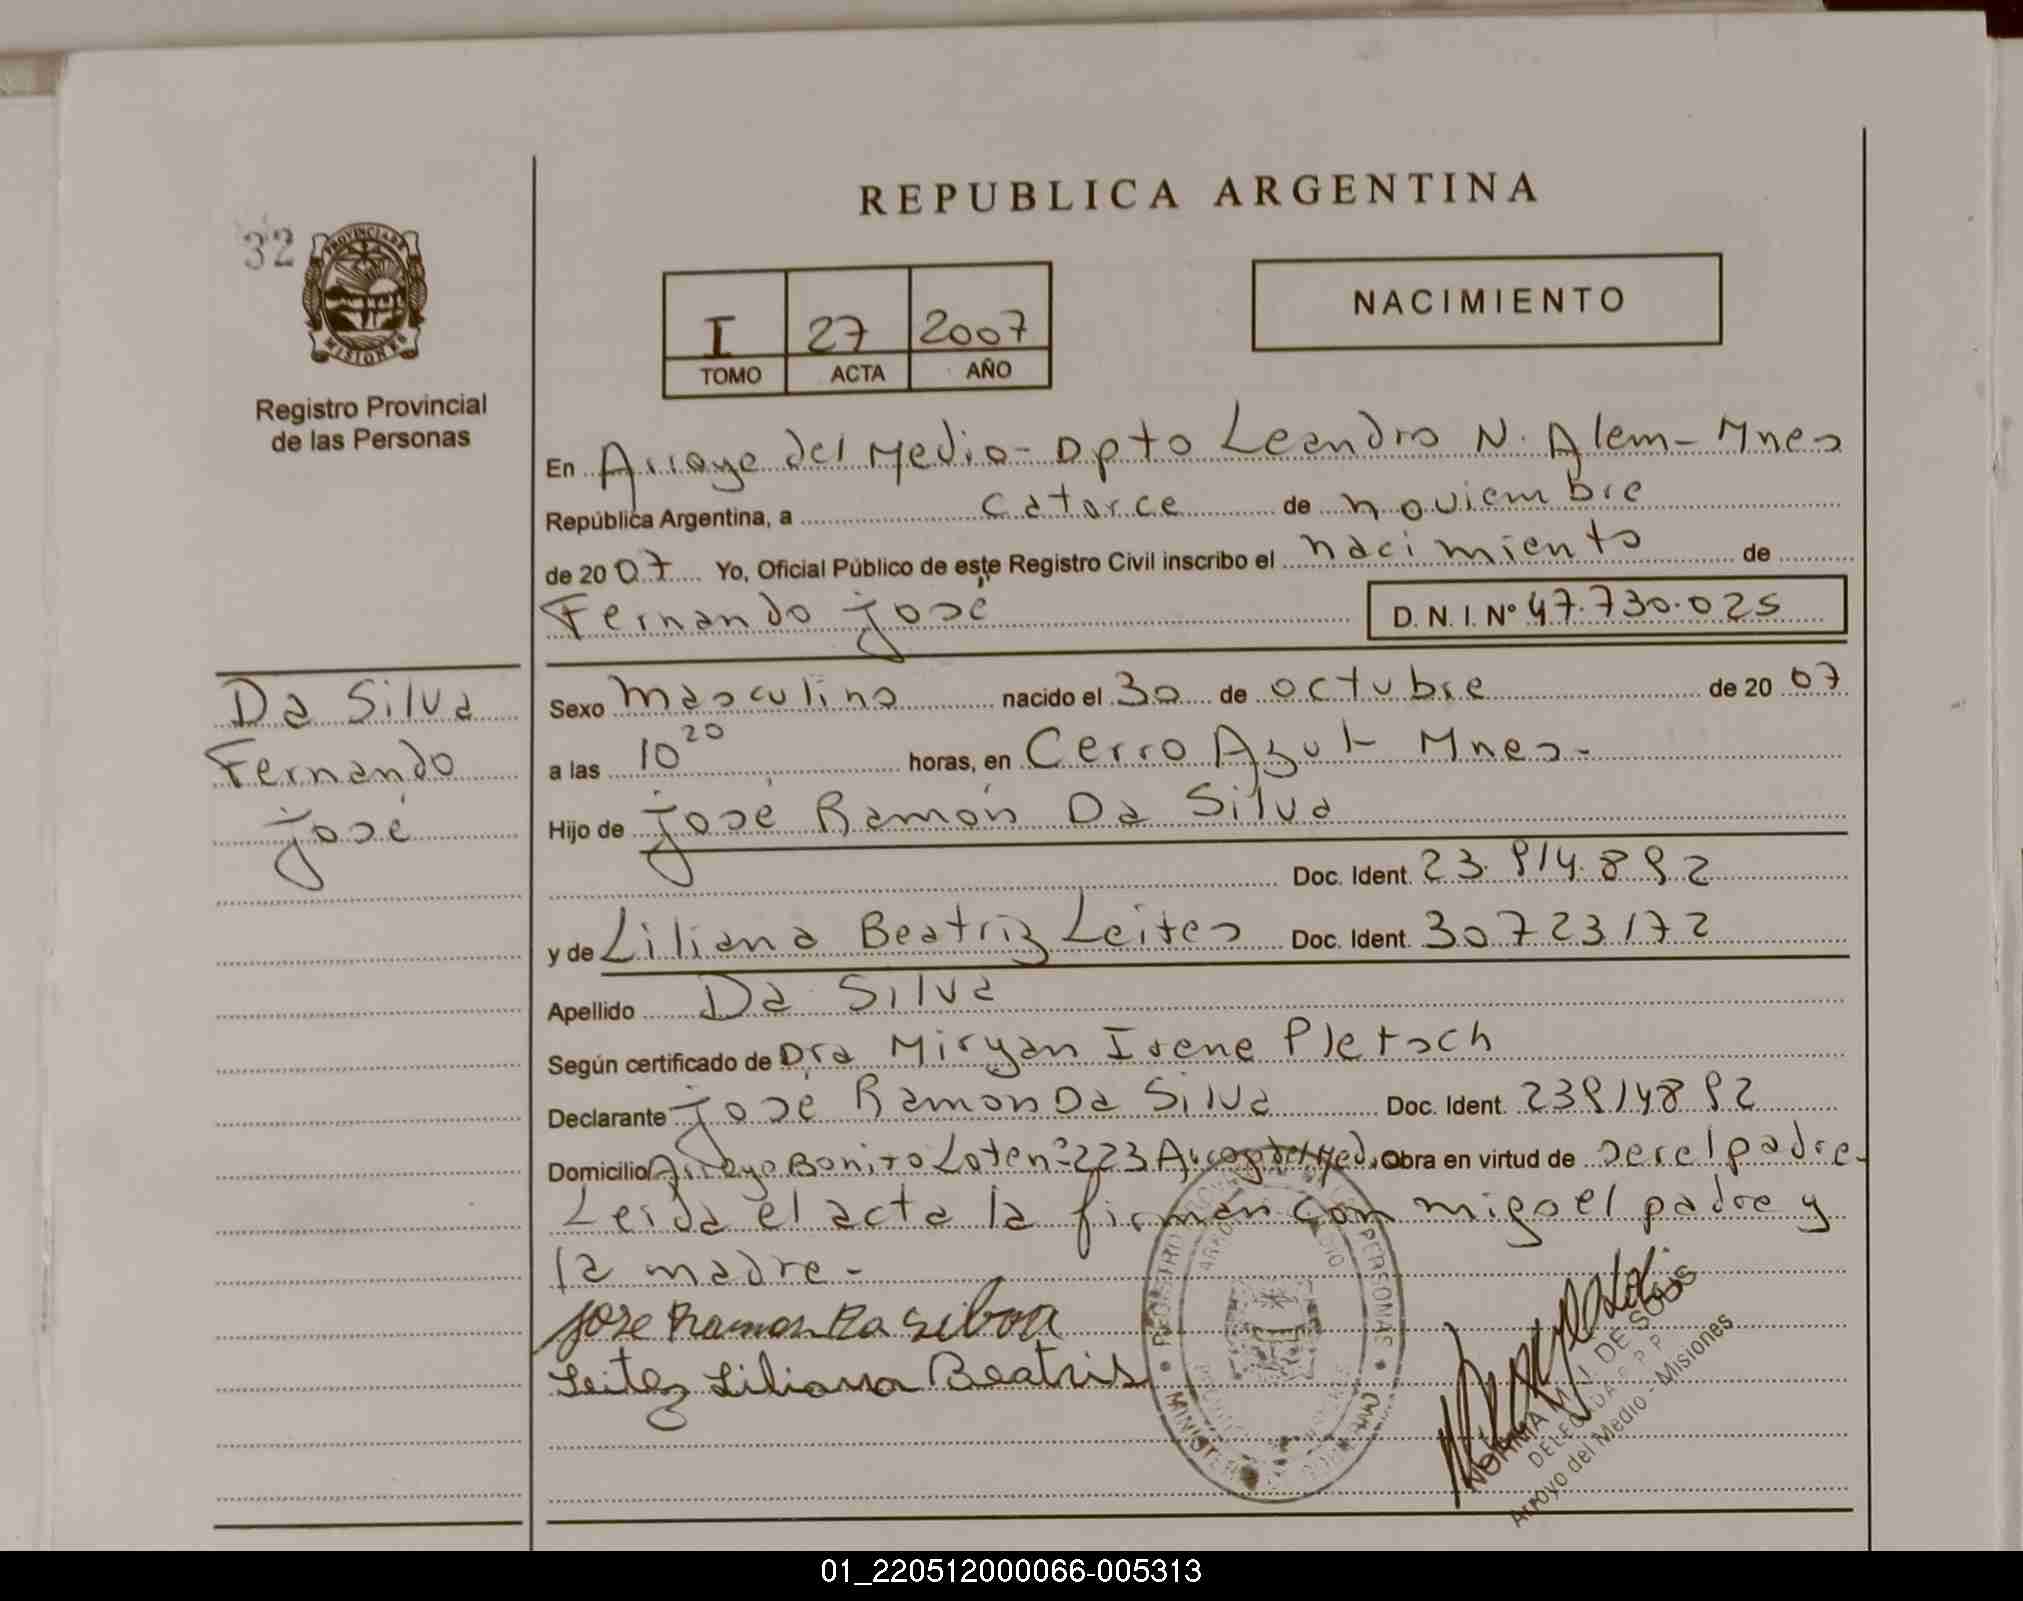 REPUBLICA ARGENTINA
32
PROVINCIA DE
MISIONES
Registro Provincial
de las Personas
I 27 2007
TOMO ACTA AÑO
NACIMIENTO
En Arroyo del Medio - Dpto Leandro N. Alem - Mnes
República Argentina, a catorce de noviembre
de 2007 Yo, Oficial Público de este Registro Civil inscribo el nacimiento de
Fernando José D. N. I. Nº 47.730.025
Da Silva
Fernando
José
Sexo masculino nacido el 30 de octubre de 2007
a las 10 20 horas, en Cerro Azul - Mnes -
Hijo de José Ramón Da Silva
Doc. Ident. 23.914.892
y de Liliana Beatriz Leites Doc. Ident. 30723172
Apellido Da Silva
Según certificado de Dra Miryan Irene Pletsch
Declarante José Ramon Da Silva Doc. Ident. 23914892
Domicilio Arroyo Bonito Lote nº 223 Arroyo del Med. Obra en virtud de ser el padre -
Leída el acta la firman con migo el padre y
la madre -
Jose Ramon Da Silboa
Leitez Liliana Beatris
REGISTRO PERSONAS
MINISTER
NORMA M. I. DE SOUS
Arroyo del Medio - Misiones
01_220512000066-005313